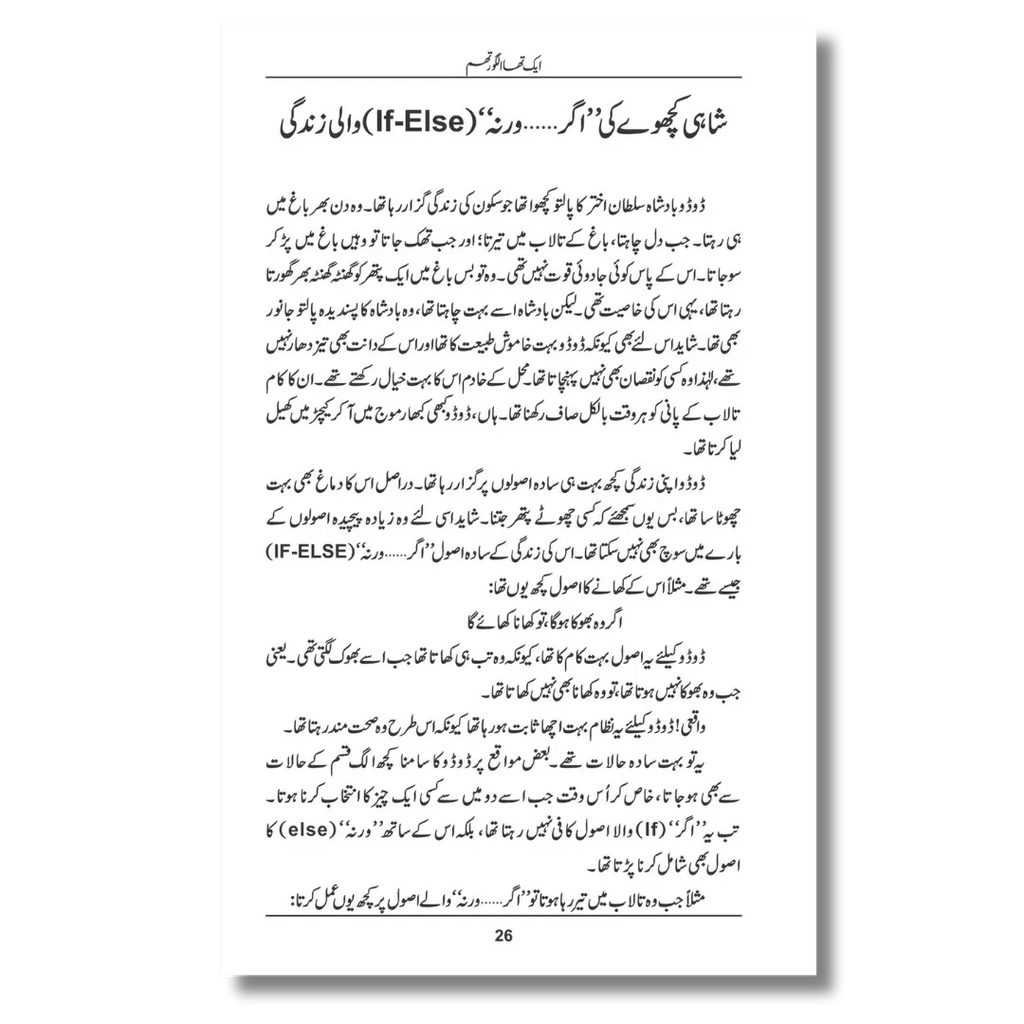 ایک تھا الگورتھم
شاہی کچھوے کی ”اگر......ورنہ“ (If-Else) والی زندگی
ڈوڈو بادشاہ سلطان اختر کا پالتو کچھوا تھا جو سکون کی زندگی گزار رہا تھا۔ وہ دن بھر باغ میں
ہی رہتا۔ جب دل چاہتا، باغ کے تالاب میں تیرتا؛ اور جب تھک جاتا تو وہیں باغ میں پڑ کر
سو جاتا۔ اس کے پاس کوئی جادوئی قوت نہیں تھی۔ وہ تو بس باغ میں ایک پتھر کو گھنٹہ گھنٹہ بھر گھورتا
رہتا تھا، یہی اس کی خاصیت تھی۔ لیکن بادشاہ اسے بہت چاہتا تھا، وہ بادشاہ کا پسندیدہ پالتو جانور
بھی تھا۔ شاید اس لئے بھی کیونکہ ڈوڈو بہت خاموش طبیعت کا تھا اور اس کے دانت بھی تیز دھار نہیں
تھے، لہٰذا وہ کسی کو نقصان بھی نہیں پہنچاتا تھا۔ محل کے خادم اس کا بہت خیال رکھتے تھے۔ ان کا کام
تالاب کے پانی کو ہر وقت بالکل صاف رکھنا تھا۔ ہاں، ڈوڈو کبھی کبھار موج میں آ کر کیچڑ میں کھیل
لیا کرتا تھا۔
ڈوڈو اپنی زندگی کچھ بہت ہی سادہ اصولوں پر گزار رہا تھا۔ دراصل اس کا دماغ بھی بہت
چھوٹا سا تھا، بس یوں سمجھئے کہ کسی چھوٹے پتھر جتنا۔ شاید اسی لئے وہ زیادہ پیچیدہ اصولوں کے
بارے میں سوچ بھی نہیں سکتا تھا۔ اس کی زندگی کے سادہ اصول ”اگر......ورنہ“ (IF-ELSE)
جیسے تھے۔ مثلاً اس کے کھانے کا اصول کچھ یوں تھا:
اگر وہ بھوکا ہوگا، تو کھانا کھائے گا
ڈوڈو کیلئے یہ اصول بہت کام کا تھا، کیونکہ وہ تب ہی کھاتا تھا جب اسے بھوک لگتی تھی۔ یعنی
جب وہ بھوکا نہیں ہوتا تھا، تو وہ کھانا بھی نہیں کھاتا تھا۔
واقعی! ڈوڈو کیلئے یہ نظام بہت اچھا ثابت ہو رہا تھا کیونکہ اس طرح وہ صحت مند رہتا تھا۔
یہ تو بہت سادہ حالات تھے۔ بعض مواقع پر ڈوڈو کا سامنا کچھ الگ قسم کے حالات
سے بھی ہو جاتا، خاص کر اُس وقت جب اسے دو میں سے کسی ایک چیز کا انتخاب کرنا ہوتا۔
تب یہ ”اگر“ (If) والا اصول کافی نہیں رہتا تھا، بلکہ اس کے ساتھ ”ورنہ“ (else) کا
اصول بھی شامل کرنا پڑتا تھا۔
مثلاً جب وہ تالاب میں تیر رہا ہوتا تو ”اگر......ورنہ“ والے اصول پر کچھ یوں عمل کرتا:
26